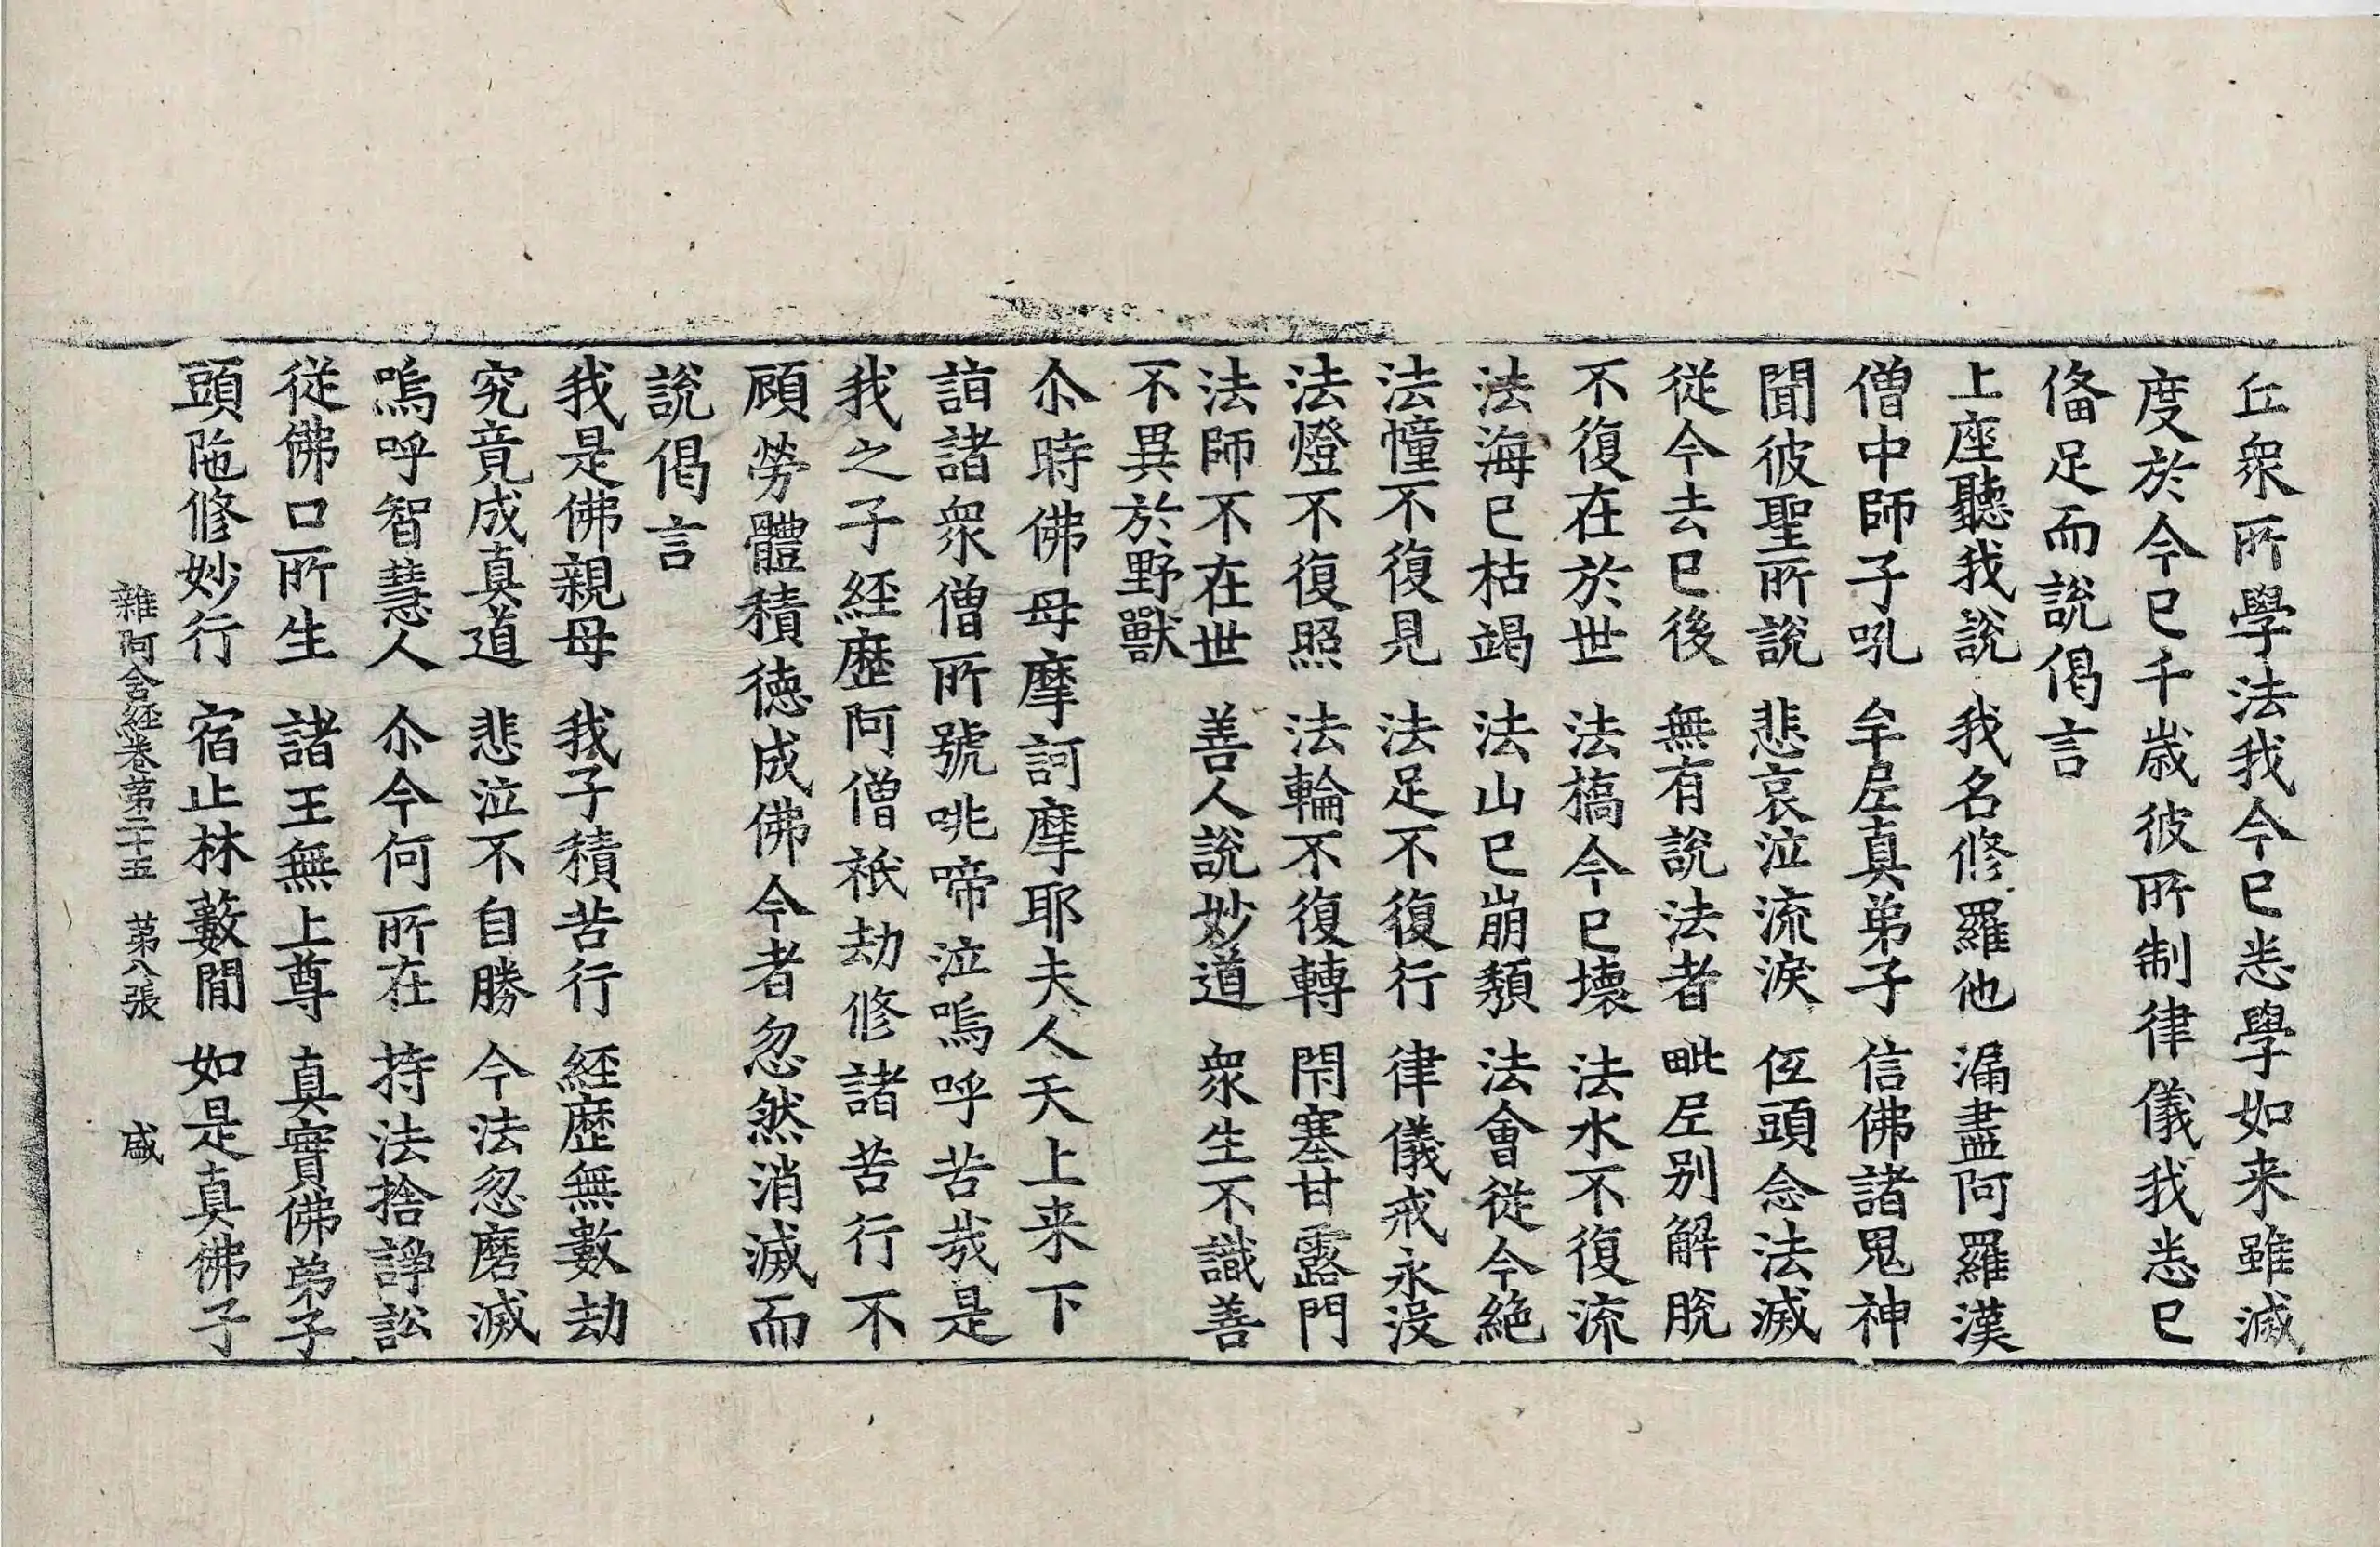 丘衆所學法我今已悉學如来雖滅
度於今已千歳彼所制律儀我悉已
俻足而說偈言
上座聽我說 我名修羅他 漏盡阿羅漢
僧中師子吼 牟𡰱真弟子 信佛諸鬼神
聞彼聖所說 悲哀泣流淚 伍頭念法滅
從今去已後 無有說法者 毗𡰱别解脫
不復在於世 法橋今已壞 法水不復流
法海已枯竭 法山已崩頽 法會從今絶
法幢不復見 法足不復行 律儀戒永没
法燈不復照 法輪不復轉 閇塞甘露門
法師不在世 善人說妙道 衆生不識善
不異於野獸
尒時佛母摩訶摩耶夫人天上来下
詣諸衆僧所號咷啼泣嗚呼苦㢤是
我之子經歷阿僧祇劫修諸苦行不
顧勞體積德成佛今者忽然消滅而
說偈言
我是佛親母 我子積苦行 經歷無數劫
究竟成真道 悲泣不自勝 今法忽磨滅
嗚呼智慧人 尒今何所在 持法捨諍訟
從佛口所生 諸王無上尊 真實佛弟子
頭陁修妙行 宿止林藪間 如是真佛子
雜阿含經卷第二十五 第八張 盛